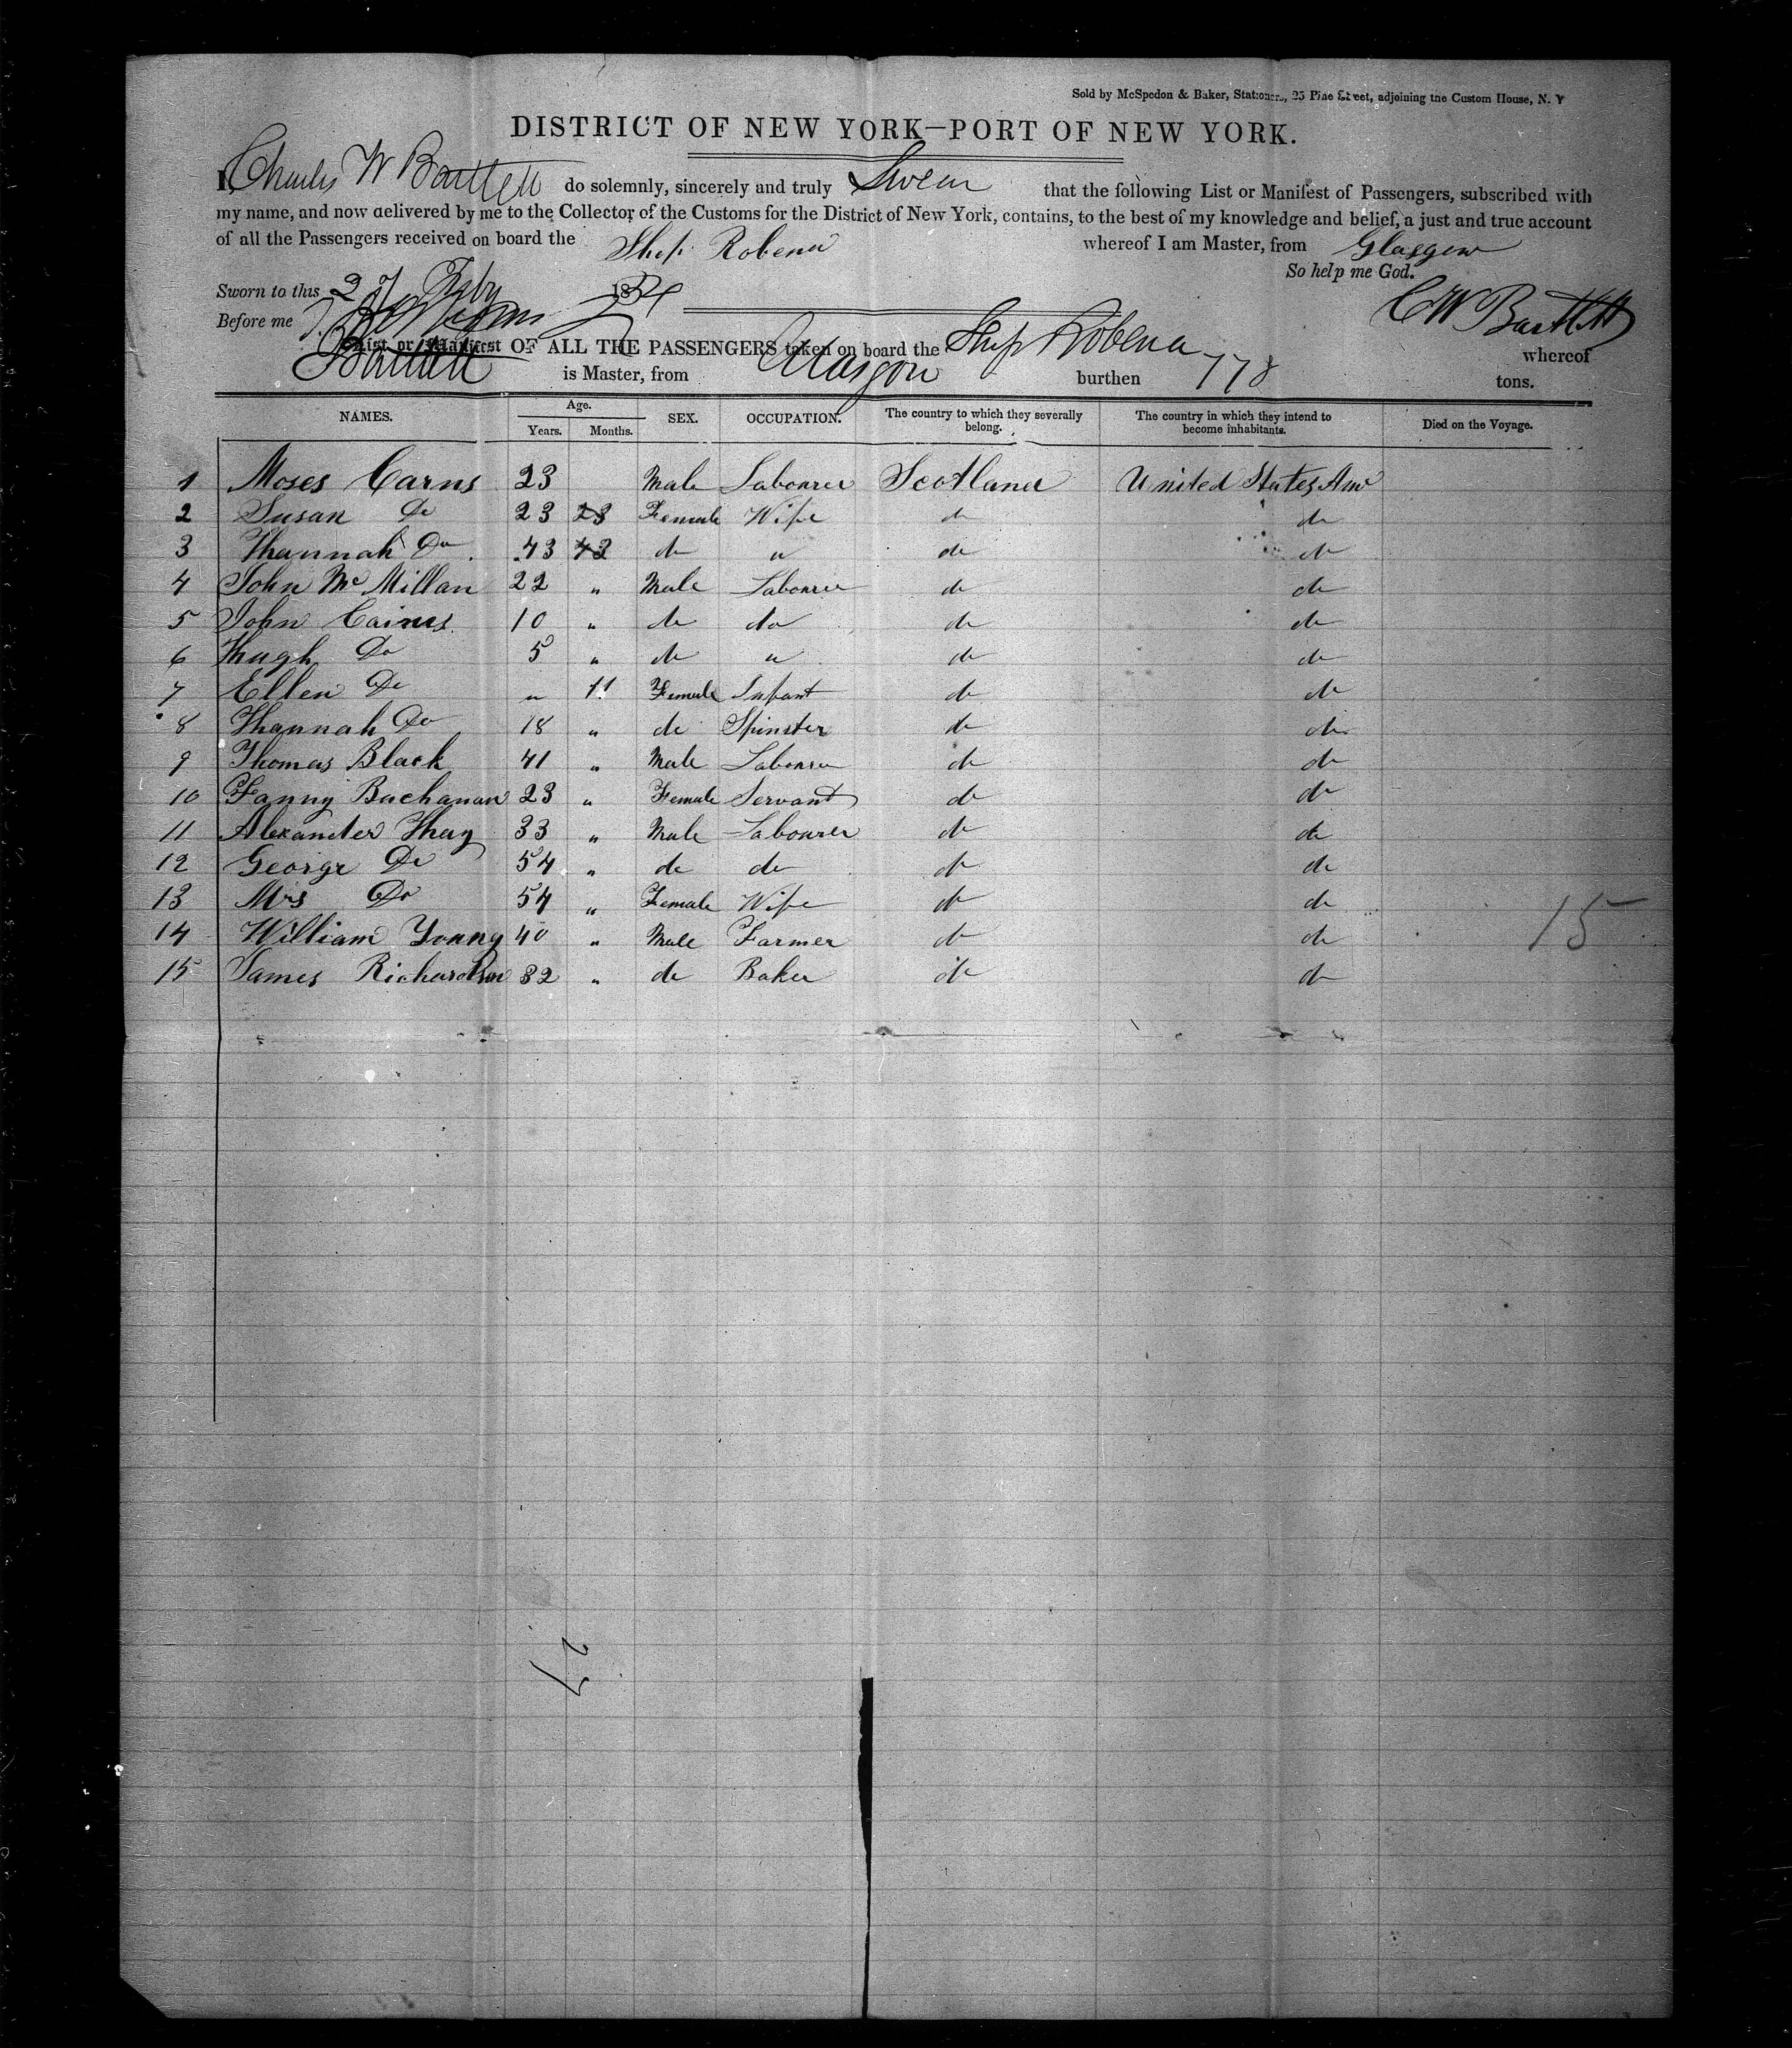 Sold by McSpedon & Baker, Stationers, 25 Pine Street, adjoining the Custom House, N. Y
DISTRICT OF NEW YORK—PORT OF NEW YORK.
I, Charles W Bartlett do solemnly, sincerely and truly Swear that the following List or Manifest of Passengers, subscribed with
my name, and now delivered by me to the Collector of the Customs for the District of New York, contains, to the best of my knowledge and belief, a just and true account
of all the Passengers received on board the Ship Robena whereof I am Master, from Glasgow
So help me God.
Sworn to this 27 Feby 1854
Before me
C W Bartlett
List or Manifest OF ALL THE PASSENGERS taken on board the Ship Robena whereof
Bartlett is Master, from Glasgow burthen 778 tons.
NAMES. Age. Years. Months. SEX. OCCUPATION. The country to which they severally belong. The country in which they intend to become inhabitants. Died on the Voyage.
1 Moses Carns 23 Male Labourer Scotland United States Ame
2 Susan Do 23 23 Female Wife do do
3 Hannah Do 43 43 do " do do
4 John Mc Millan 22 " Male Labourer do do
5 John Cairns 10 " do do do do
6 Hugh Do 5 " do " do do
7 Ellen Do " 11 Female Infant do do
8 Hannah Do 18 " do Spinster do do
9 Thomas Black 41 " Male Labourer do do
10 Fanny Buchanan 23 " Female Servant do do
11 Alexander Hay 33 " Male Labourer do do
12 George Do 54 " do do do do
13 Mrs Do 54 " Female Wife do do
14 William Young 40 " Male Farmer do do
15 James Richardson 32 " do Baker do do
15
27